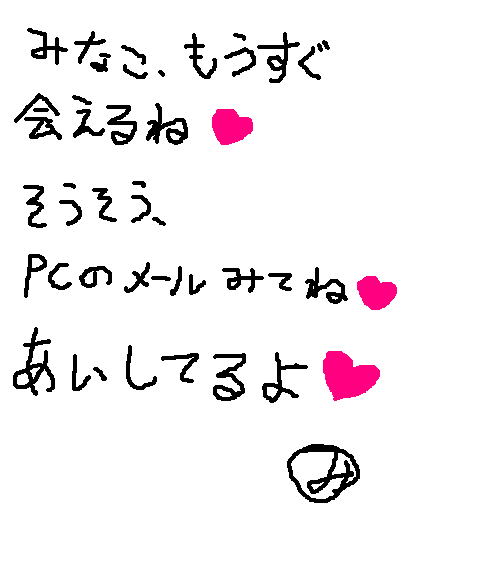 みなこ、もうすぐ
会えるね
そうそう、
PCのメールみてね
あいしてるよ
み